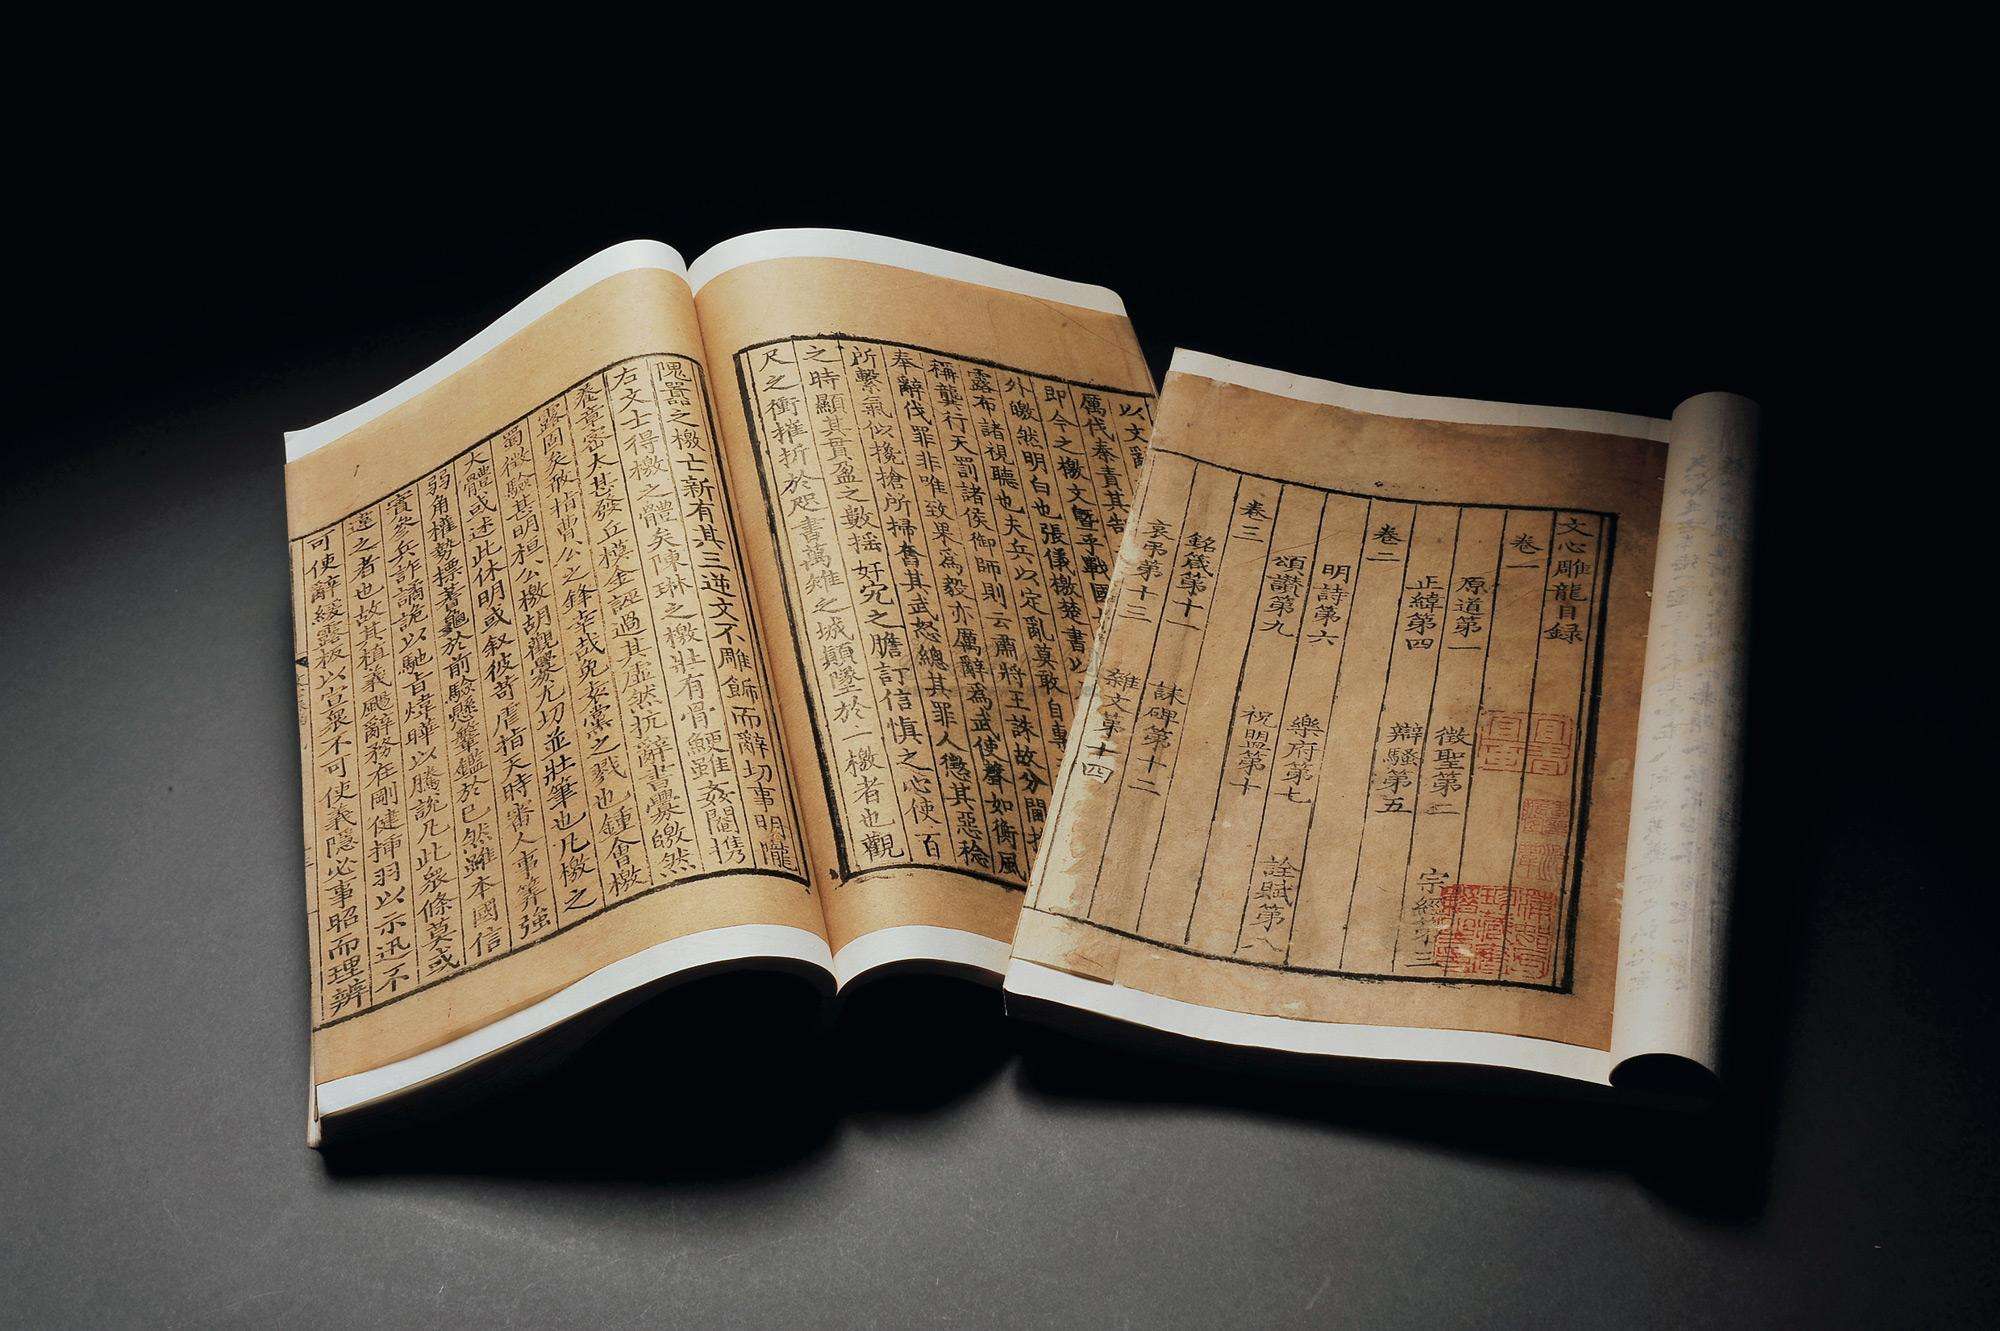 文心雕龍目録
卷一
原道第一 徵聖第二 宗經第三
正緯第四 辯騷第五
卷二
明詩第六 樂府第七 詮賦第八
頌讃第九 祝盟第十
卷三
銘箴第十一 誄碑第十二
哀弔第十三 雜文第十四
以文辭
厲伐秦責其告
即今之檄文暨乎戰國
外皦然明白也張儀檄楚書以
露布諸視聽也夫兵以定亂莫敢自專
稱龔行天罰諸侯御師則云肅將王誅故分閫推
奉辭伐罪非唯致果為毅亦厲辭為武使聲如衡風
所繫氣似攙搶所掃奮其武怒總其罪人懲其惡稔
之時顯其貫盈之數揺奸宄之膽訂信慎之心使百
尺之衝摧折於咫書萬雉之城顛墜於一檄者也觀
隗嚻之檄亡新有其三逆文不雕飾而辭切事明隴
右文士得檄之體矣陳琳之檄壯有骨鯁雖姦閹携
養章密太甚發丘模金誣過其虐然抗辭書釁皦然
露固矣敢指曹公之鋒幸哉免袁黨之戮也鍾會檄
蜀徵驗甚明桓公檄胡觀釁尤切並壯筆也凡檄之
大體或述此休明或叙彼苛虐指天時審人事筭強
弱角權勢標蓍龜於前驗懸鞶鑑於已然雖本國信
實參兵詐譎詭以馳旨煒曄以騰説凡此衆條莫或
違之者也故其植義颺辭務在剛健揷羽以示迅不
可使辭緩露板以宣衆不可使義隱必事昭而理辨